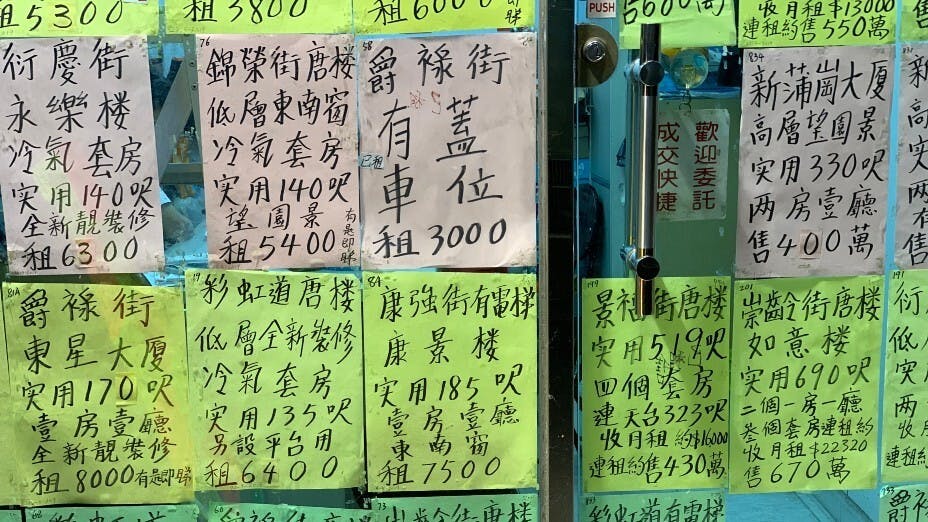 租5300
租3800
租6000
即睇
PUSH
5600萬
收月租$13000
連租約售550萬
衍慶街
永樂楼
冷氣套房
实用140呎
全新靚裝修
租6300
76
錦榮街唐楼
低層東南窗
冷氣套房
实用140呎
望園景
租5400
有匙即睇
58
爵祿街
有蓋
車位
已租
租3000
歡迎委託
成交快捷
834
新蒲崗大厦
高層望園景
实用330呎
两房壹廳
售400萬
81A
爵祿街
東星大厦
实用170呎
壹房壹廳
全新靚裝修
租8000有匙即睇
19
彩虹道唐楼
低層全新裝修
冷氣套房
实用135呎
另設平台用
租6400
84
康強街有電梯
康景楼
实用185呎
壹房壹廳
東南窗
租7500
199
景福街唐楼
实用519呎
四個套房
連天台323呎
收月租約$16000
連租約售430萬
201
崇齡街唐楼
如意楼
实用690呎
二個一房一廳
叁個套房連租約
收月租$22320
售670萬
191
衍
低
实用
两
收
連租
彩虹道
73
崇齡街唐楼
彩虹道有電梯
爵